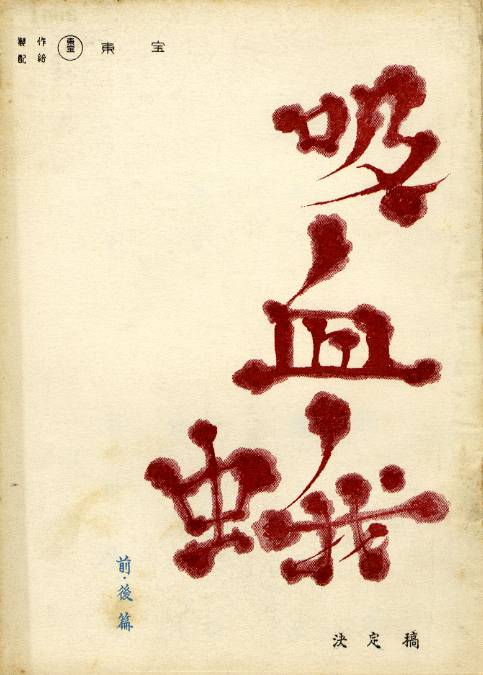 製作
配給
東宝
東宝
吸血蛾
前・後篇
決定稿